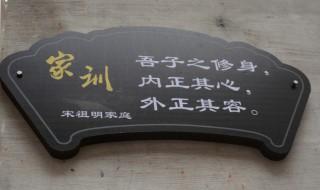 家训
吾子之修身，
内正其心，
外正其容。
宋祖明家庭